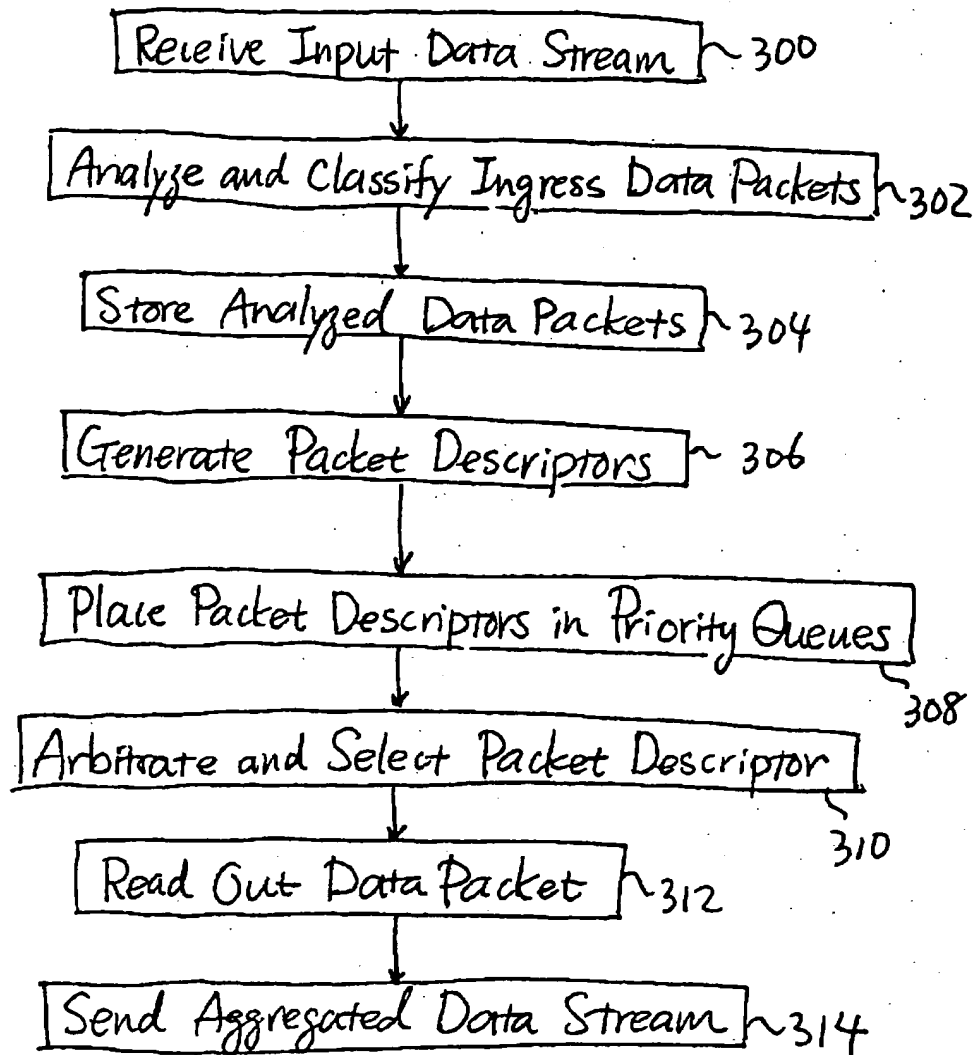 Receive Input Data Stream 300
Analyze and Classify Ingress Data Packets 302
Store Analyzed Data Packets 304
Generate Packet Descriptors 306
Place Packet Descriptors in Priority Queues
308
Arbitrate and Select Packet Descriptor
310
Read Out Data Packet 312
Send Aggregated Data Stream 314